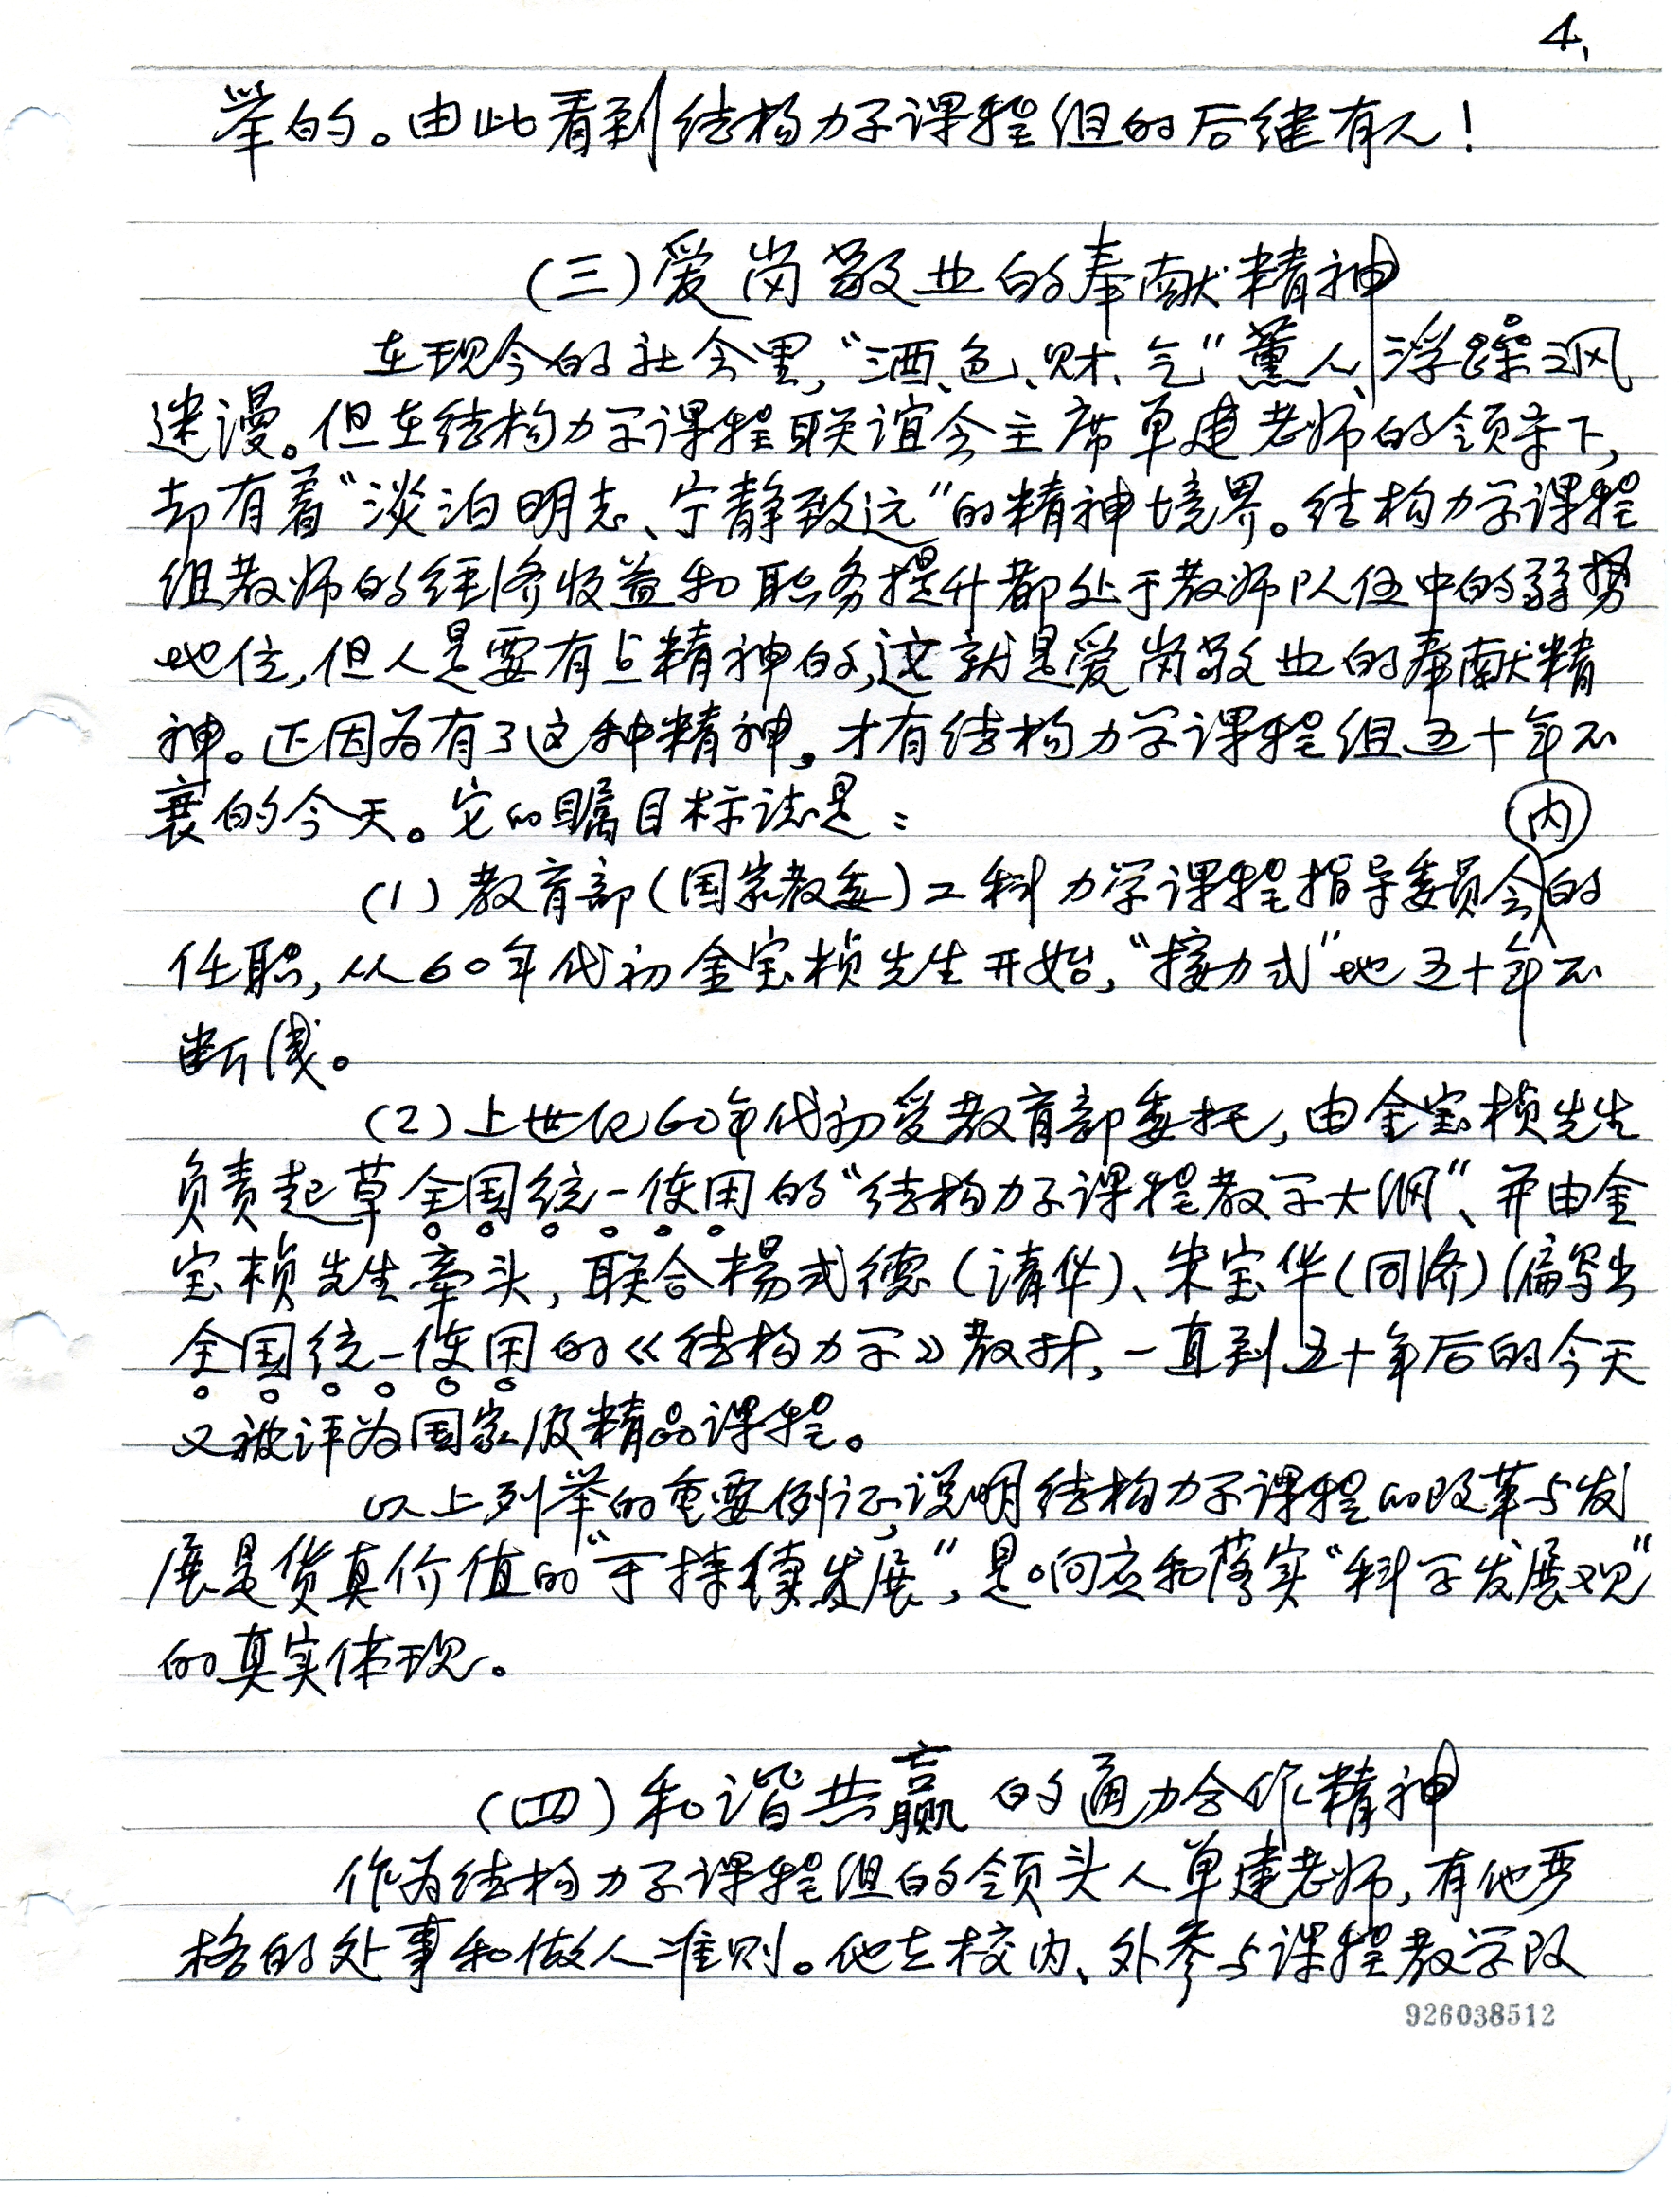 4.
举的。由此看到结构力学课程组的后继有人!
(三)爱岗敬业的奉献精神
在现今的社会里,“酒、色、财、气”薰人,浮躁之风
迷漫。但在结构力学课程联谊会主席单建老师的领导下,
却有着“淡泊明志、宁静致远”的精神境界。结构力学课程
组教师的经济收益和职务提升都处于教师队伍中的弱势
地位,但人是要有点精神的,这就是爱岗敬业的奉献精
神。正因为有了这种精神,才有结构力学课程组五十年不
衰的今天。它的瞩目标誌是:
(1)教育部(国家教委)工科力学课程指导委员会内的
任职,从60年代初金宝桢先生开始,“接力式”地五十年不
断线。
(2)上世纪60年代初受教育部委托,由金宝桢先生
负责起草全国统一使用的“结构力学课程教学大纲”、并由金
宝桢先生牵头,联合杨式德(清华)、朱宝华(同济)编写出
全国统一使用的《结构力学》教材,一直到五十年后的今天
又被评为国家级精品课程。
以上列举的重要例证,说明结构力学课程的改革与发
展是货真价值的“可持续发展”,是响应和落实“科学发展观”
的真实体现。
(四)和谐共赢的通力合作精神
作为结构力学课程组的领头人单建老师,有他严
格的处事和做人准则。他在校内、外参与课程教学改
926038512